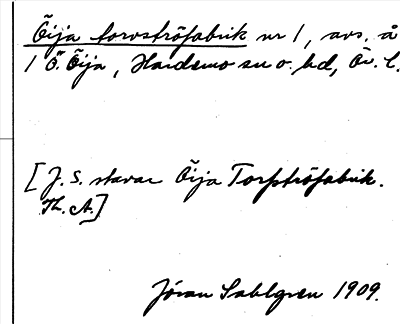 Öija torvströfabrik nr 1, avs. å
1 Ö. Öija, Hardemo sn o. hd, Ör. l.
[J. S. stavar Öija Torfströfabrik.
Th. A.]
Jöran Sahlgren 1909.